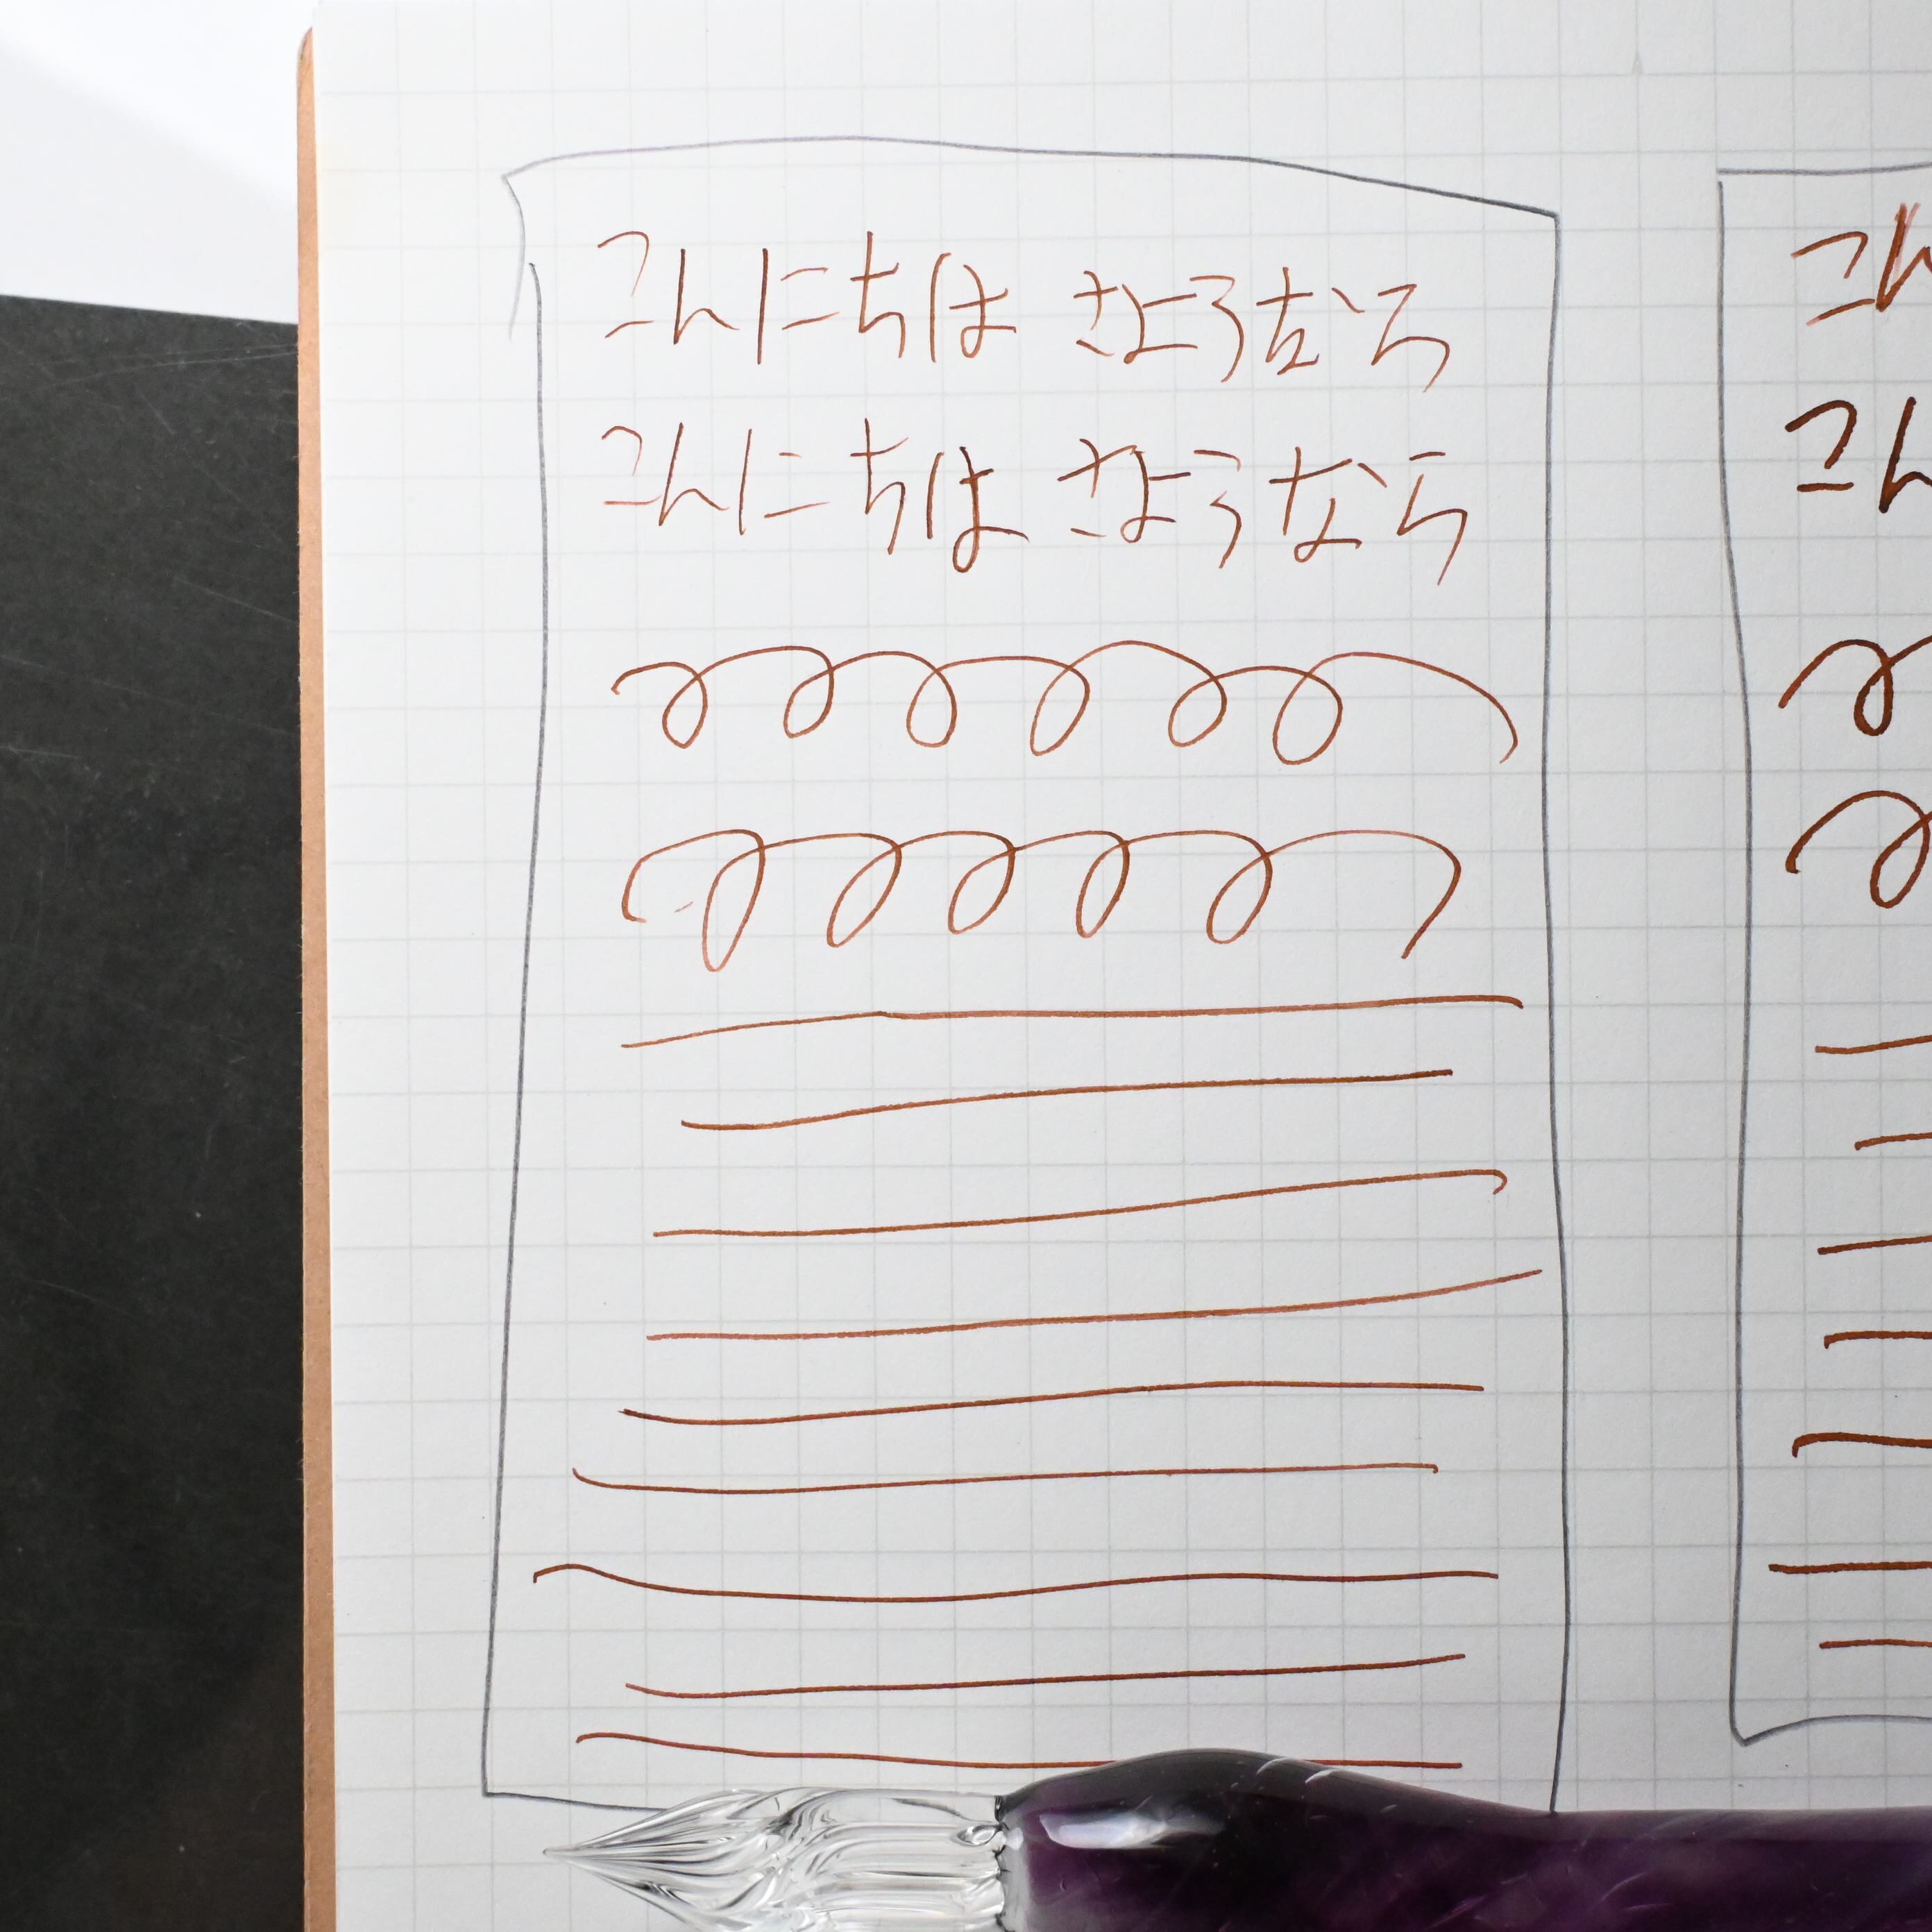 こんにちは さようなら
こんにちは さようなら
こん
こん